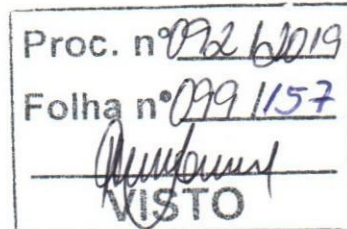 Proc. nº 092/2019
Folha nº 099/157
VISTO